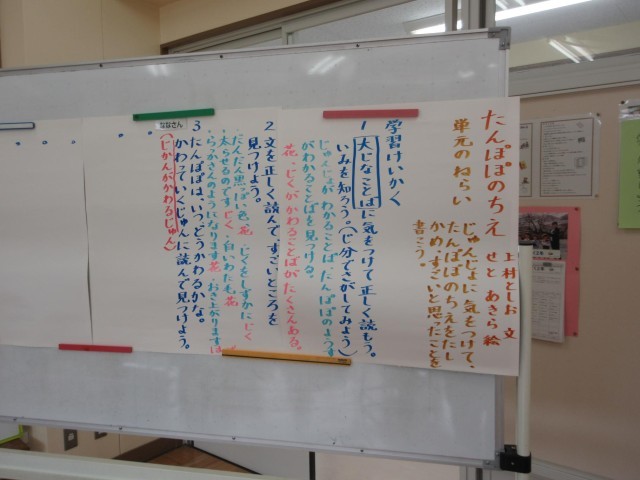 たんぽぽのちえ
上村としお 文
せと あきら 絵
単元のねらい
じゅんじょに気をつけて、
たんぽぽのちえをたし
かめ、すごいと思ったことを
書こう。
学習けいかく
1 大じなことばに気をつけて正しく読もう。
いみを知ろう。(じ分でさがしてみよう)
じゅんじょがわかることば、たんぽぽのようす
がわかることばを見つける。
花、じくがかわることばがたくさんある。
2 文を正しく読んで、すごいところを
見つけよう。
・だんだん 思ぱい色 花 ・じくをしずかに じく
・太らせるのです じく ・白いわた毛 花
・らっかさんのようになります 花 ・おき上がります
ななさん
3 たんぽぽは、いつ、どうかわるかな。
かわっていくじゅんに読んで見つけよう。
(じかんがかわるじゅん)